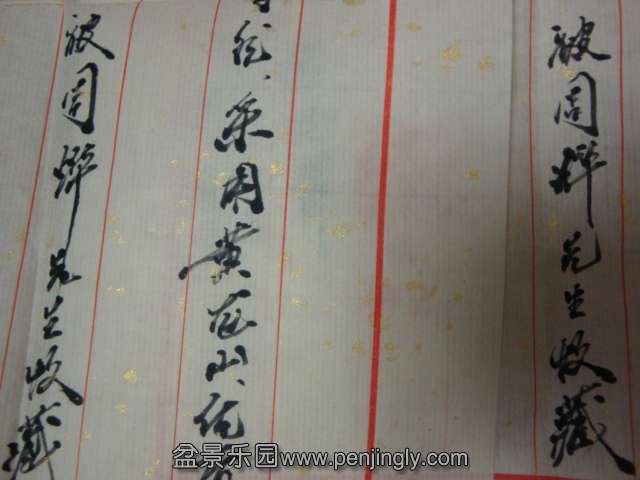 被周辉先生收藏
采用黄花山
被周辉先生收藏
盆景乐园www.penjingly.com